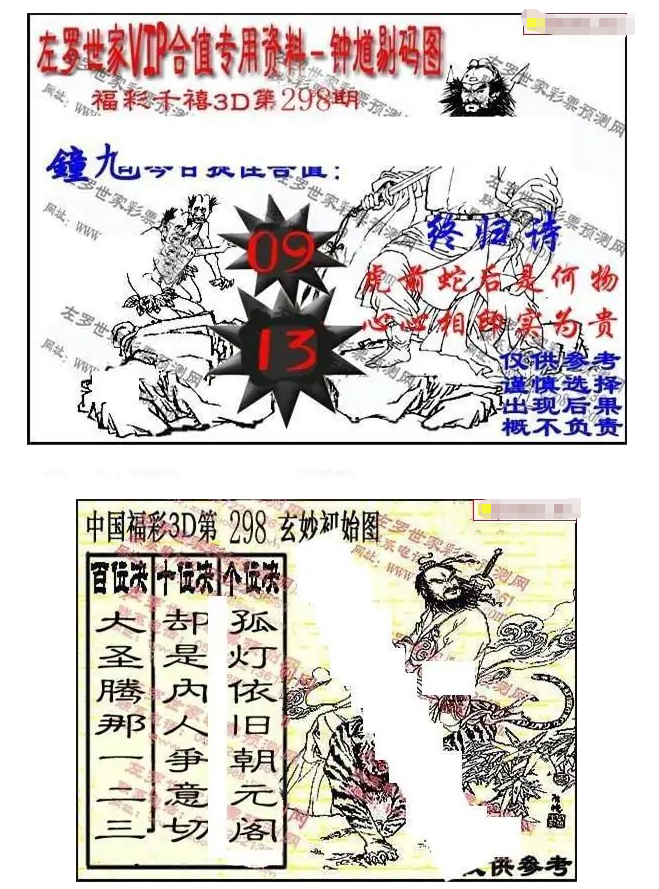 左罗世家VIP合值专用资料-钟馗剔码图
福彩千禧3D第298期
09
13
终归诗
虎前蛇后是何物
心心相印实为贵
仅供参考
谨慎选择
出现后果
概不负责
中国福彩3D第 298 玄妙初始图
百位决 十位决 个位决
大圣腾那一二三
却是内人争意切
孤灯依旧朝元阁
供参考